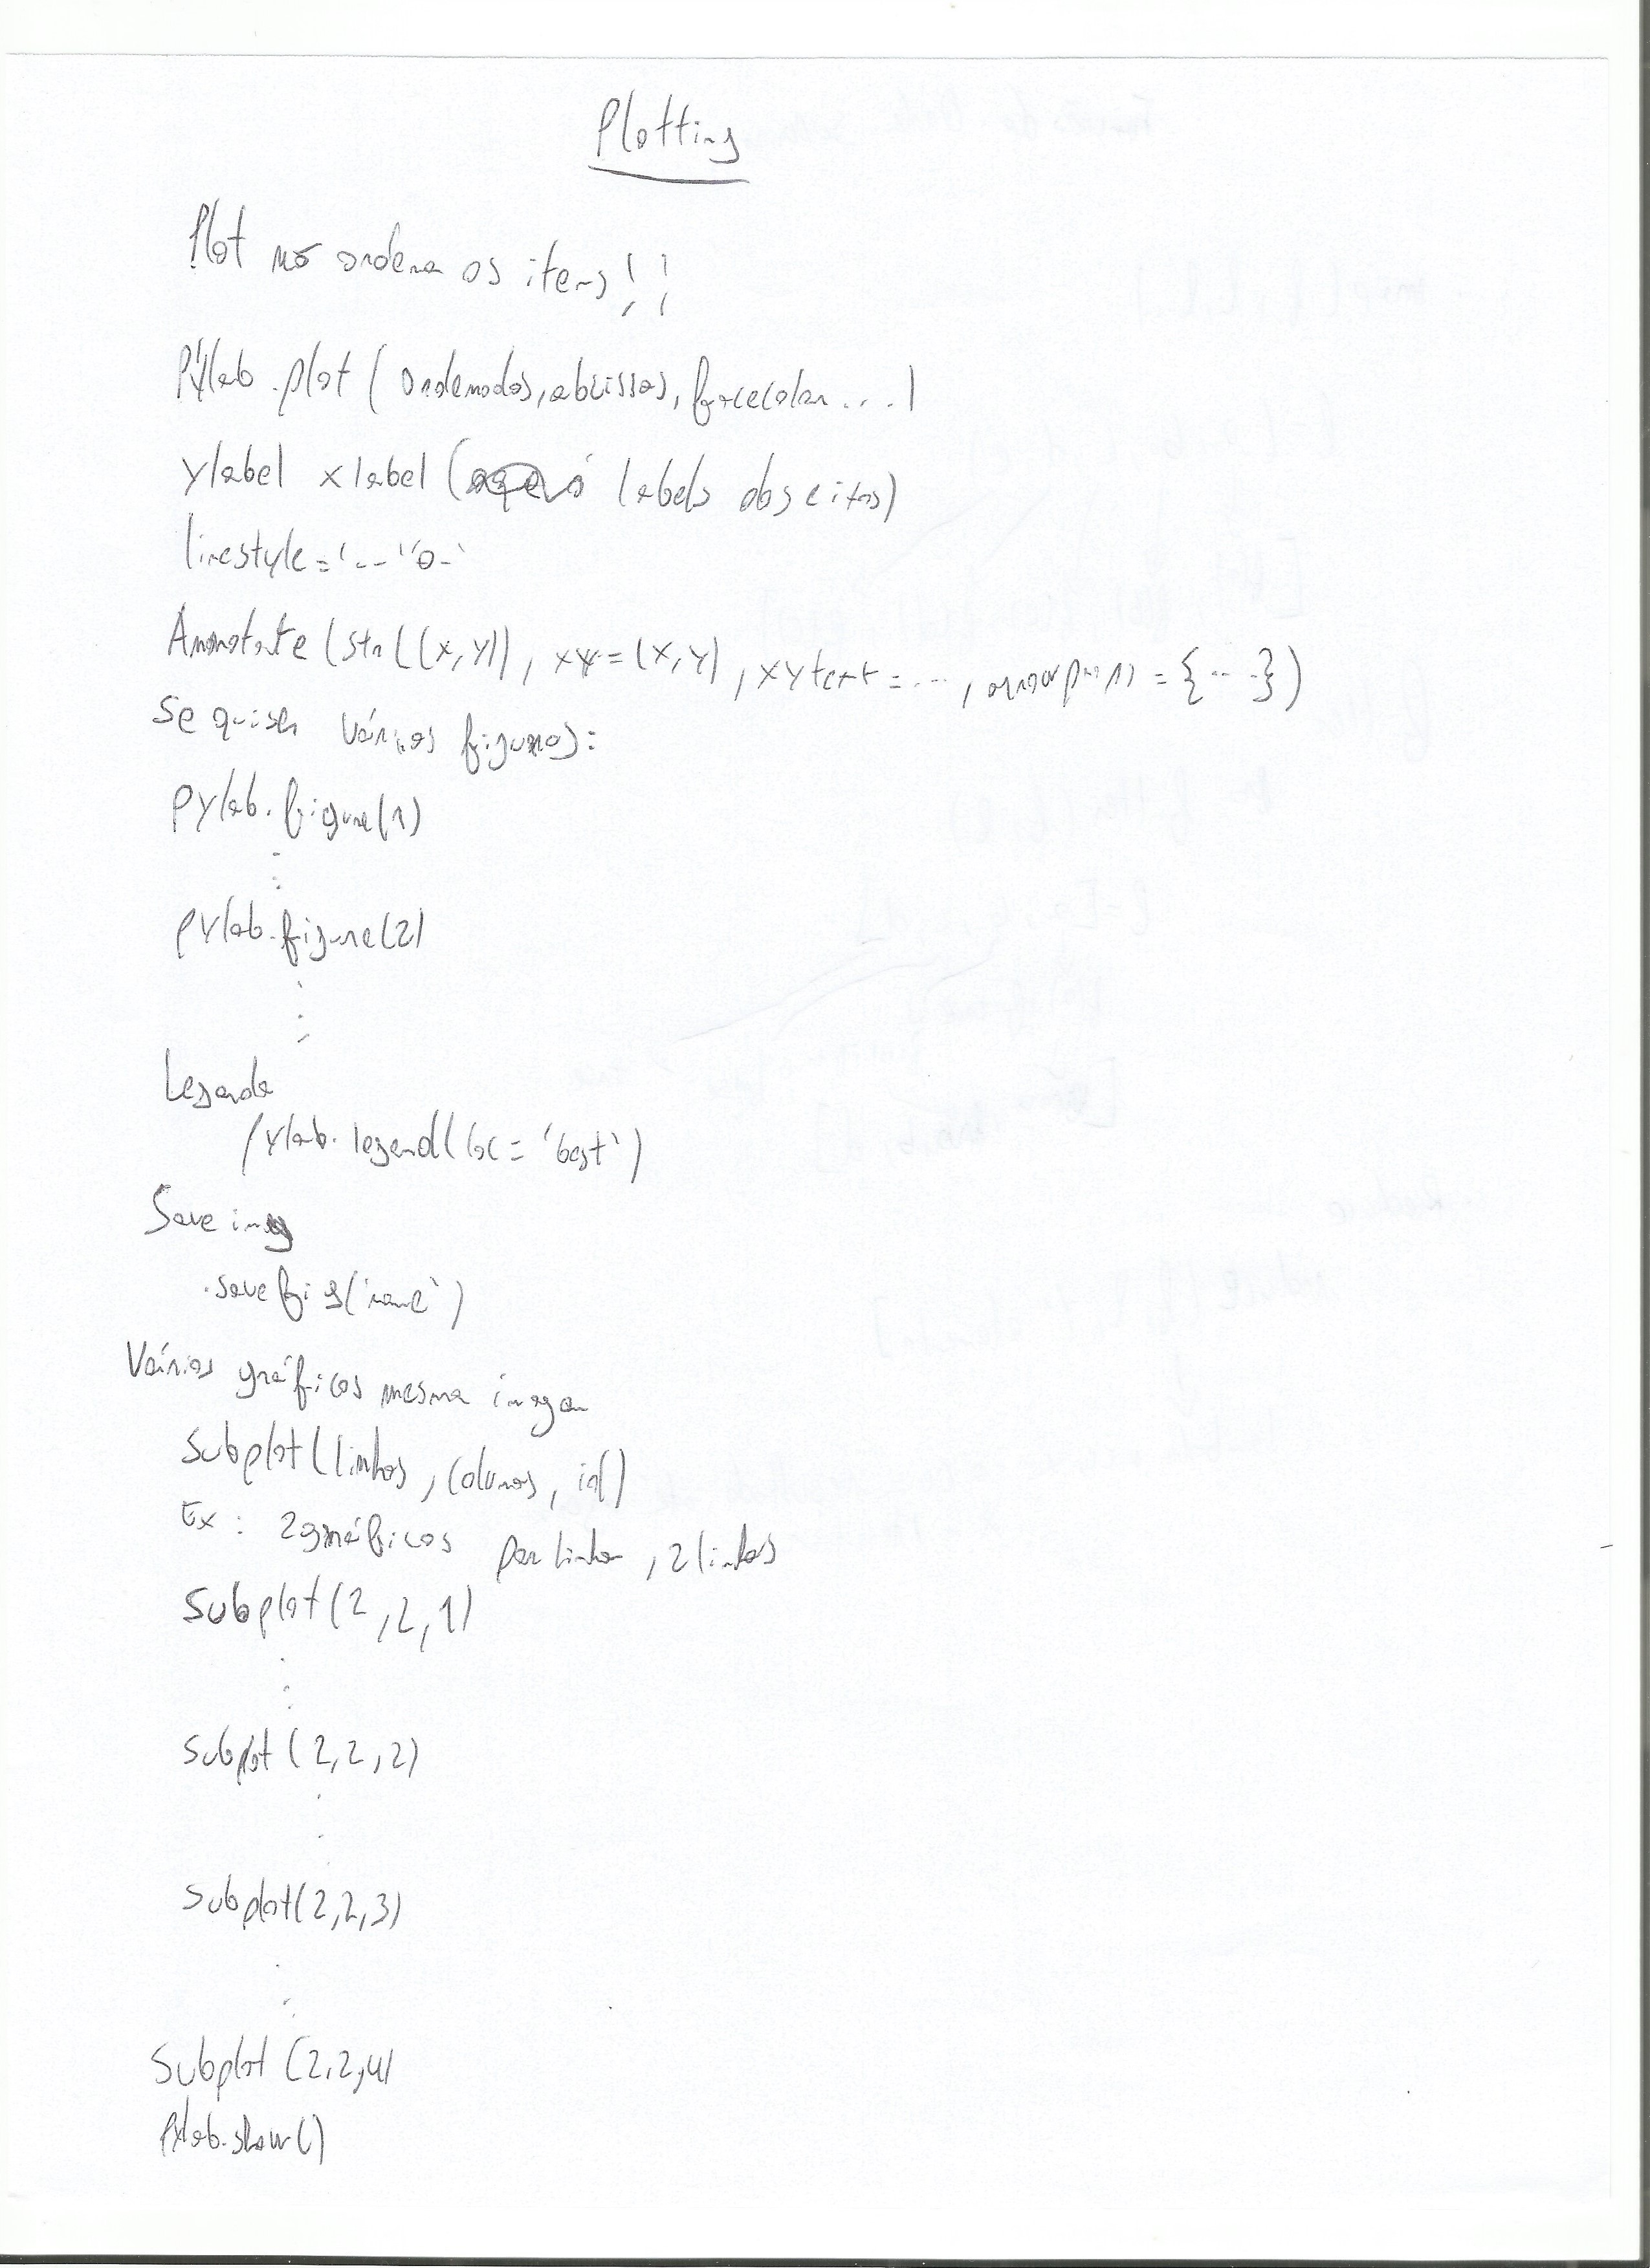 Plotting
Plot não ordena os itens!!
Pylab.plot(ordenadas, abcissas, facecolor....)
ylabel xlabel ( labels dos eixos)
linestyle='--' 'o-'
Annotate(str((x,y)), xy=(x,y), xytext=..., arrowprops={...})
Se quiser várias figuras:
pylab.figure(1)
pylab.figure(2)
Legenda
pylab.legend(loc='best')
Save img
.savefig('name')
Vários gráficos mesma imagem
Subplot(linhas, colunas, id)
Ex: 2 gráficos por linha, 2 linhas
Subplot(2,2,1)
Subplot(2,2,2)
Subplot(2,2,3)
Subplot(2,2,4)
Pylab.show()